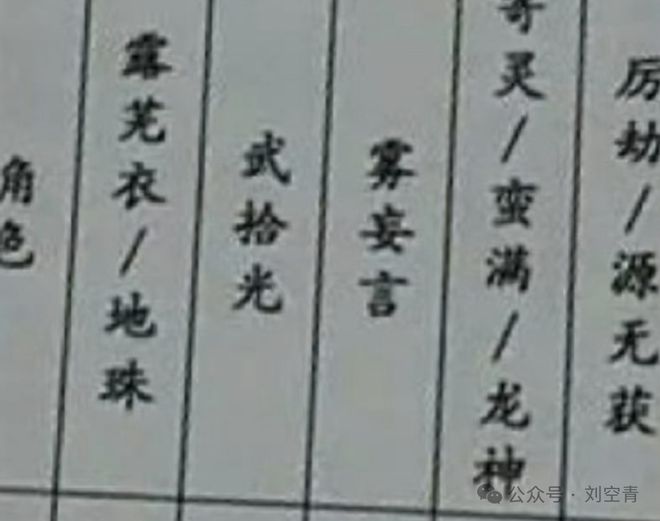 角色
露芜衣/地珠
武拾光
雾妄言
寄灵/蛮满/龙神
厉劫/源无获
公众号·刘空青